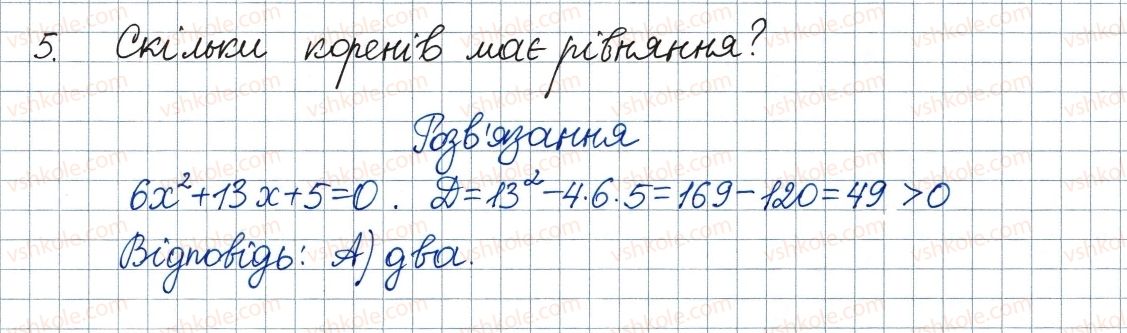 5. Скільки коренів має рівняння?
Розв'язання
6x²+13x+5=0. Д=13²-4·6·5=169-120=49>0
Відповідь: А) два.